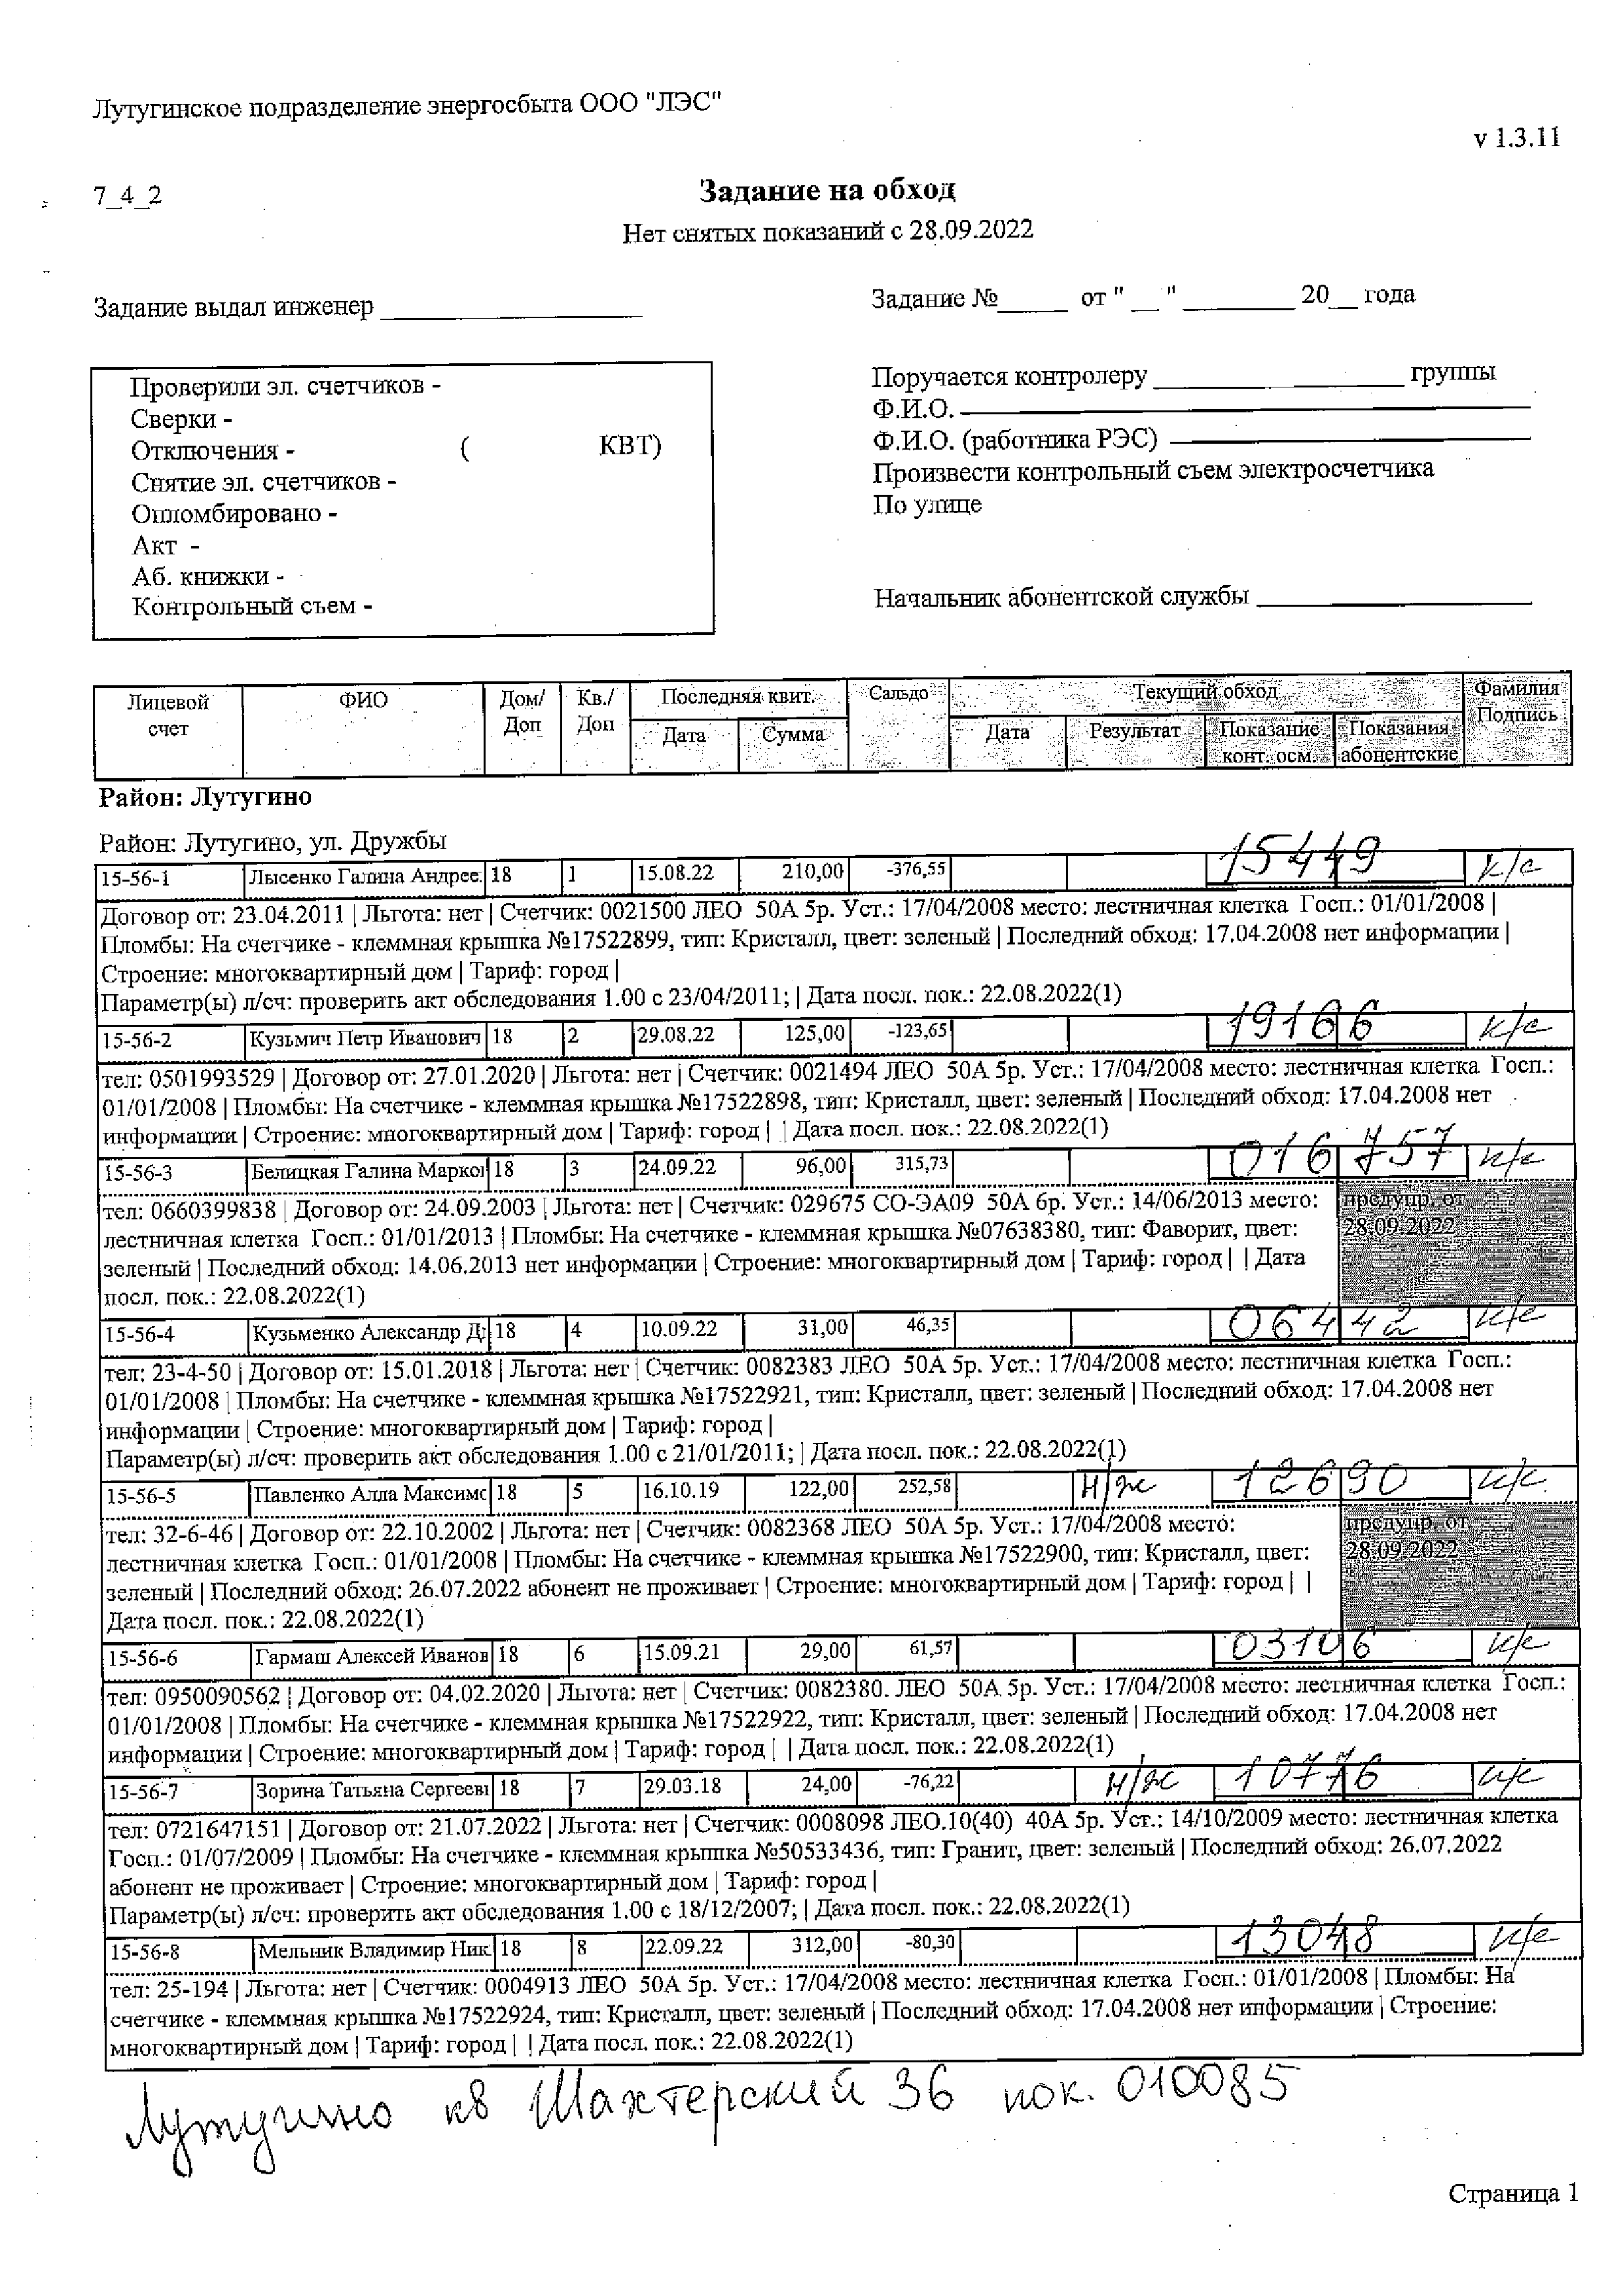 Лутугинское подразделение энергосбыта ООО "ЛЭС"
v 1.3.11
7_4_2
Задание на обход
Нет снятых показаний с 28.09.2022
Задание выдал инженер ____________________
Задание №_____ от " __ " ________ 20__ года
Проверили эл. счетчиков -
Сверки -
Отключения - ( КВТ)
Снятие эл. счетчиков -
Опломбировано -
Акт -
Аб. книжки -
Контрольный съем -
Поручается контролеру ____________________ группы
Ф.И.О.
Ф.И.О. (работника РЭС)
Произвести контрольный съем электросчетчика
По улице
Начальник абонентской службы ____________________
Лицевой счет ФИО Дом/ Доп Кв./ Доп Последняя квит. Дата Сумма Сальдо Текущий обход Дата Результат Показание конт. осм. Показания абонентские Фамилия Подпись
Район: Лутугино
Район: Лутугино, ул. Дружбы
15-56-1 Лысенко Галина Андрее 18 1 15.08.22 210,00 -376,55 15449 к/с
Договор от: 23.04.2011 | Льгота: нет | Счетчик: 0021500 ЛЕО 50А 5р. Уст.: 17/04/2008 место: лестничная клетка Госп.: 01/01/2008 |
Пломбы: На счетчике - клеммная крышка №17522899, тип: Кристалл, цвет: зеленый | Последний обход: 17.04.2008 нет информации |
Строение: многоквартирный дом | Тариф: город |
Параметр(ы) л/сч: проверить акт обследования 1.00 с 23/04/2011; | Дата посл. пок.: 22.08.2022(1)
15-56-2 Кузьмич Петр Иванович 18 2 29.08.22 125,00 -123,65 19166 к/с
тел: 0501993529 | Договор от: 27.01.2020 | Льгота: нет | Счетчик: 0021494 ЛЕО 50А 5р. Уст.: 17/04/2008 место: лестничная клетка Госп.:
01/01/2008 | Пломбы: На счетчике - клеммная крышка №17522898, тип: Кристалл, цвет: зеленый | Последний обход: 17.04.2008 нет
информации | Строение: многоквартирный дом | Тариф: город | | Дата посл. пок.: 22.08.2022(1)
15-56-3 Белицкая Галина Марко 18 3 24.09.22 96,00 315,73 016757 к/с
тел: 0660399838 | Договор от: 24.09.2003 | Льгота: нет | Счетчик: 029675 СО-ЭА09 50А 6р. Уст.: 14/06/2013 место:
лестничная клетка Госп.: 01/01/2013 | Пломбы: На счетчике - клеммная крышка №07638380, тип: Фаворит, цвет:
зеленый | Последний обход: 14.06.2013 нет информации | Строение: многоквартирный дом | Тариф: город | | Дата
посл. пок.: 22.08.2022(1)
предупр. от
28.09.2022
15-56-4 Кузьменко Александр Д 18 4 10.09.22 31,00 46,35 06442 к/с
тел: 23-4-50 | Договор от: 15.01.2018 | Льгота: нет | Счетчик: 0082383 ЛЕО 50А 5р. Уст.: 17/04/2008 место: лестничная клетка Госп.:
01/01/2008 | Пломбы: На счетчике - клеммная крышка №17522921, тип: Кристалл, цвет: зеленый | Последний обход: 17.04.2008 нет
информации | Строение: многоквартирный дом | Тариф: город |
Параметр(ы) л/сч: проверить акт обследования 1.00 с 21/01/2011; | Дата посл. пок.: 22.08.2022(1)
15-56-5 Павленко Алла Максимс 18 5 16.10.19 122,00 252,58 н/ж 12690 к/с
тел: 32-6-46 | Договор от: 22.10.2002 | Льгота: нет | Счетчик: 0082368 ЛЕО 50А 5р. Уст.: 17/04/2008 место:
лестничная клетка Госп.: 01/01/2008 | Пломбы: На счетчике - клеммная крышка №17522900, тип: Кристалл, цвет:
зеленый | Последний обход: 26.07.2022 абонент не проживает | Строение: многоквартирный дом | Тариф: город | |
Дата посл. пок.: 22.08.2022(1)
предупр. от
28.09.2022
15-56-6 Гармаш Алексей Иванов 18 6 15.09.21 29,00 61,57 03106 к/с
тел: 0950090562 | Договор от: 04.02.2020 | Льгота: нет | Счетчик: 0082380. ЛЕО 50А 5р. Уст.: 17/04/2008 место: лестничная клетка Госп.:
01/01/2008 | Пломбы: На счетчике - клеммная крышка №17522922, тип: Кристалл, цвет: зеленый | Последний обход: 17.04.2008 нет
информации | Строение: многоквартирный дом | Тариф: город | | Дата посл. пок.: 22.08.2022(1)
15-56-7 Зорина Татьяна Сергеевн 18 7 29.03.18 24,00 -76,22 н/ж 10776 к/с
тел: 0721647151 | Договор от: 21.07.2022 | Льгота: нет | Счетчик: 0008098 ЛЕО.10(40) 40А 5р. Уст.: 14/10/2009 место: лестничная клетка
Госп.: 01/07/2009 | Пломбы: На счетчике - клеммная крышка №50533436, тип: Гранит, цвет: зеленый | Последний обход: 26.07.2022
абонент не проживает | Строение: многоквартирный дом | Тариф: город |
Параметр(ы) л/сч: проверить акт обследования 1.00 с 18/12/2007; | Дата посл. пок.: 22.08.2022(1)
15-56-8 Мельник Владимир Ник 18 8 22.09.22 312,00 -80,30 13048 к/с
тел: 25-194 | Льгота: нет | Счетчик: 0004913 ЛЕО 50А 5р. Уст.: 17/04/2008 место: лестничная клетка Госп.: 01/01/2008 | Пломбы: На
счетчике - клеммная крышка №17522924, тип: Кристалл, цвет: зеленый | Последний обход: 17.04.2008 нет информации | Строение:
многоквартирный дом | Тариф: город | | Дата посл. пок.: 22.08.2022(1)
Лутугино кв Шахтерский 36 пок. 010085
Страница 1